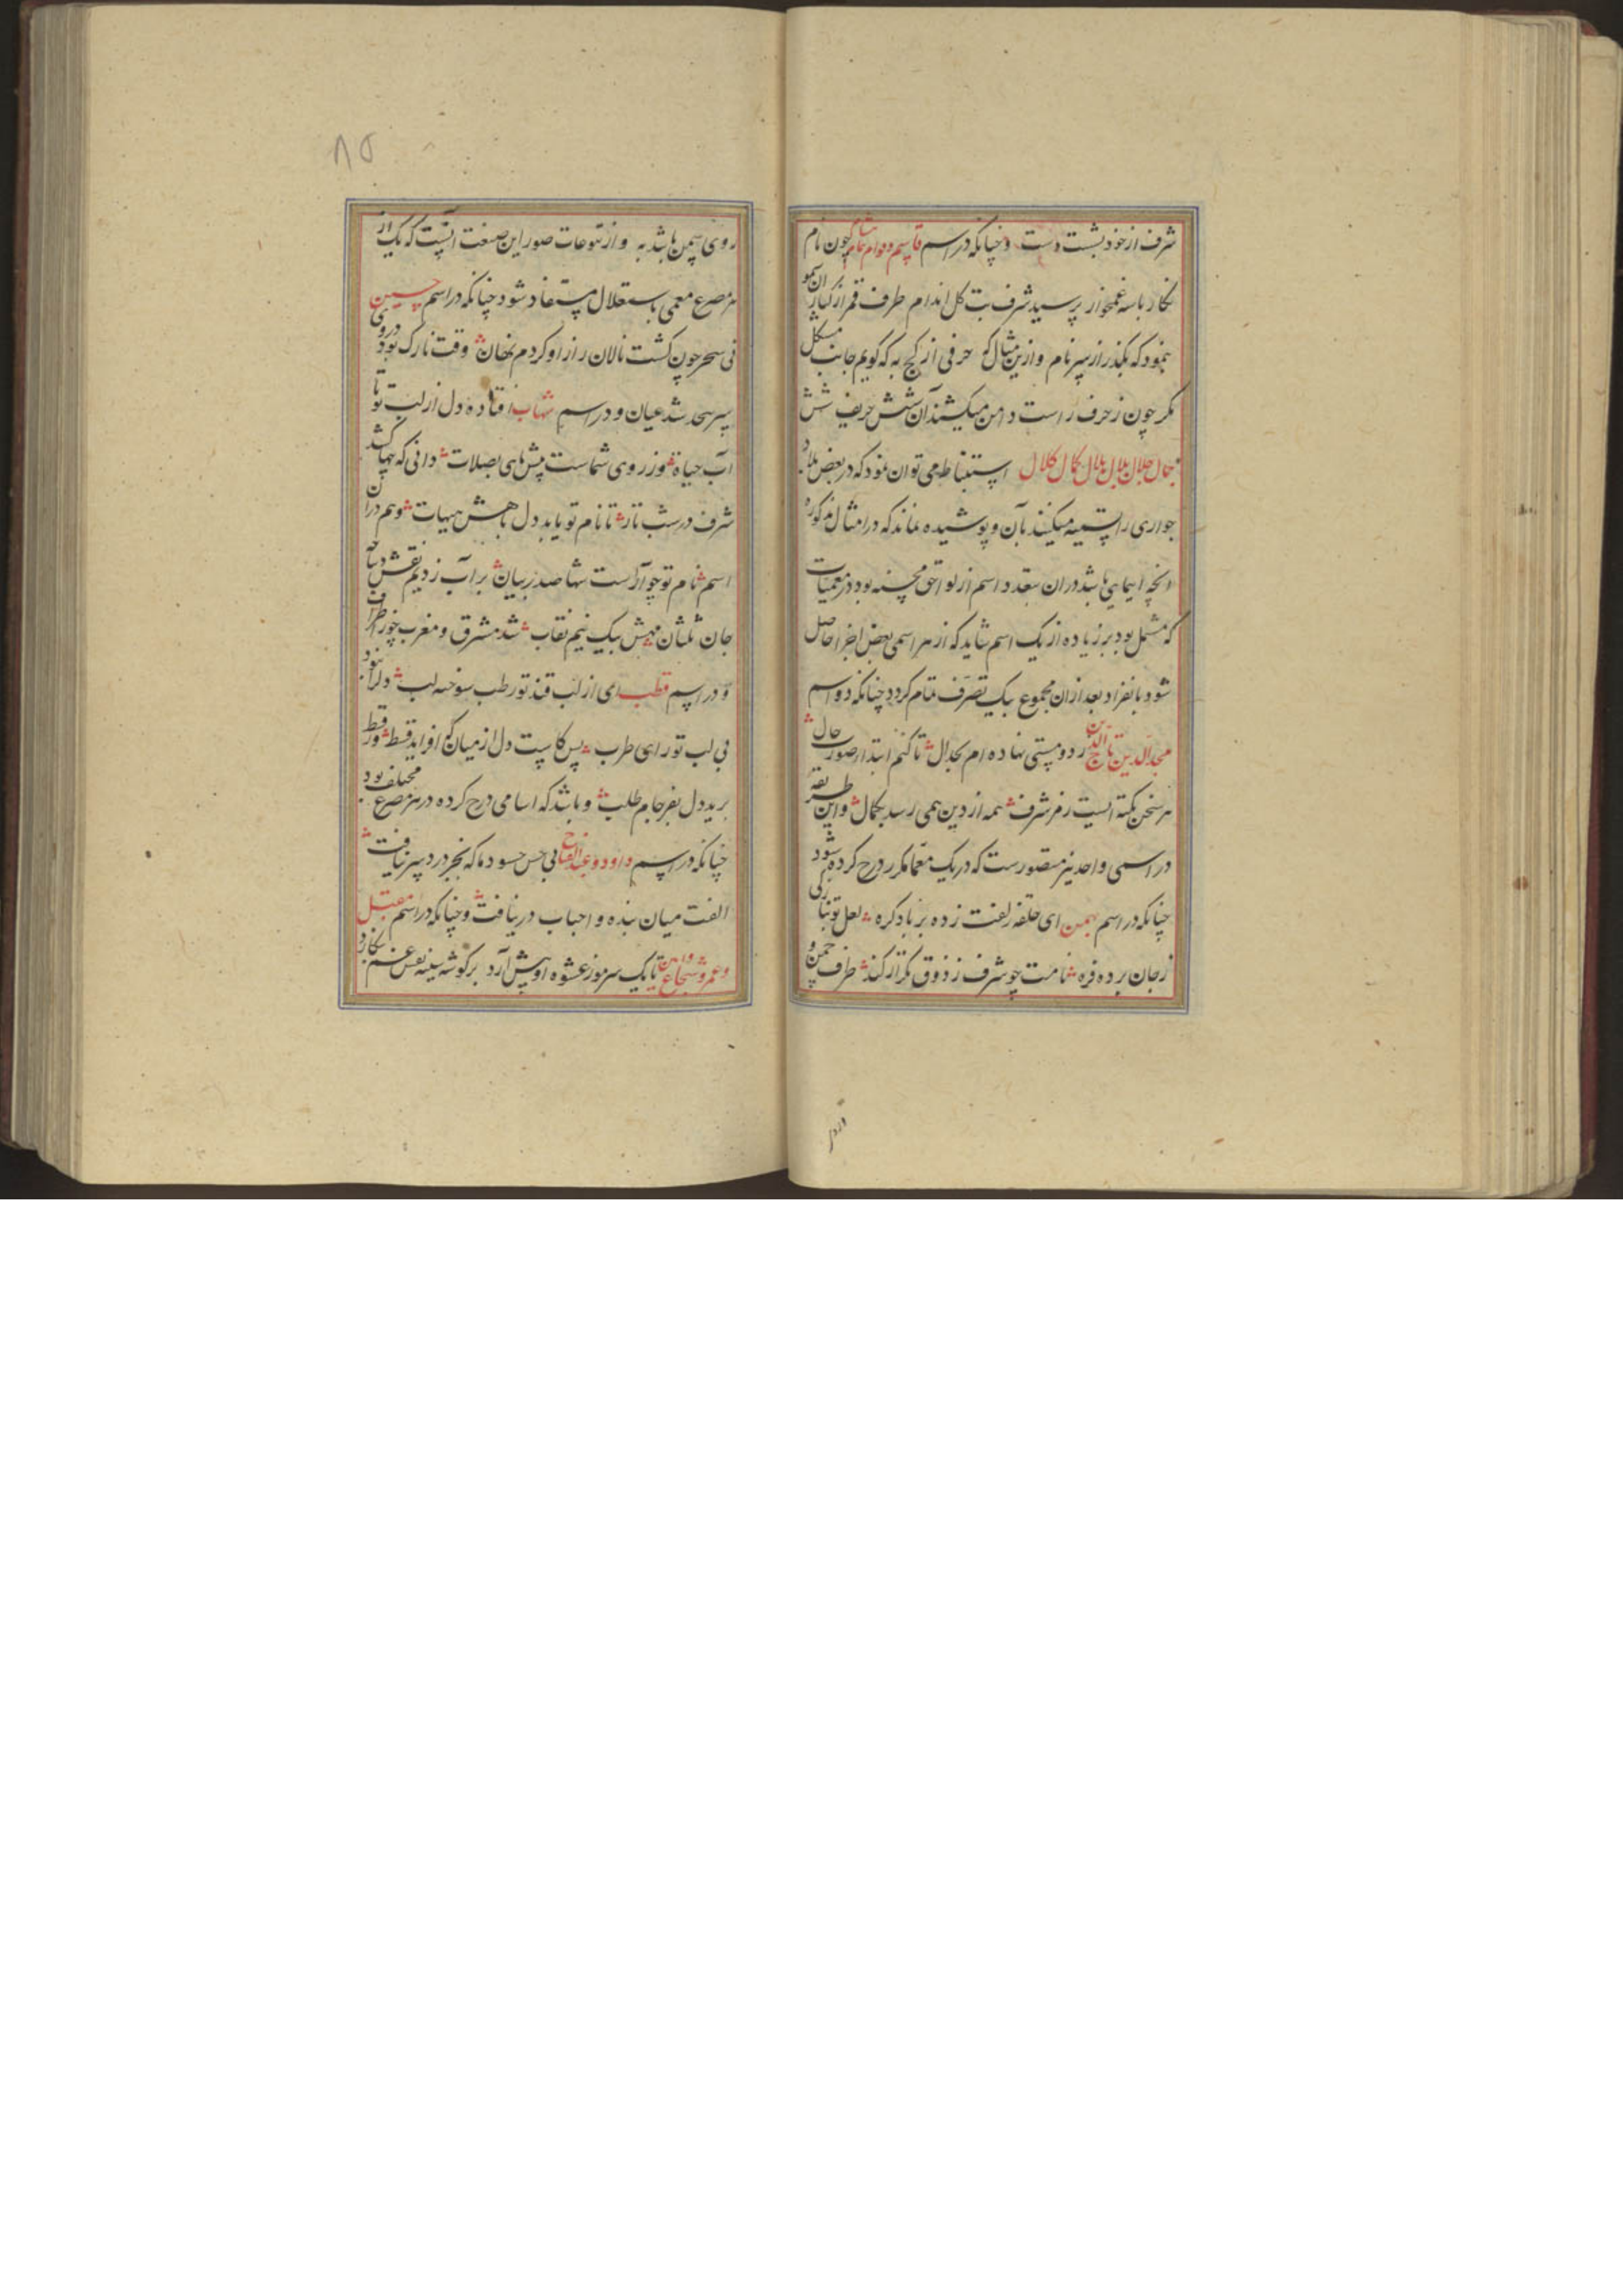 شرف از خود بشست دست وچنانکه در اسم قاسم و دوام چون نام
نکار با سه غمخوار پرسید شرف بت کل اندام طرف قمر از کنار
بنمود که بکذر از سر نام و ازین مثال که حرفی از کج به که کویم جانب مشکل
مکر چون ز حرف راست دامن میکشند آن شش حریف شش
جمال جلال بلال هلال کمال کلال استنباط می توان نمود که در بعض بلاد
جواری را تسمیه میکنند بآن و پوشیده نماند که در امثال مذکوره
انچه ایمایی باشد در ان بتعدد اسم از لواحق محسنه بود در معمیات
که مشتمل بود بر زیاده از یک اسم شاید که از هر اسمی بعض اجزا حاصل
شود بانفراد بعد ازان مجموع بیک تصرف تمام کردد چنانکه دو اسم
مجد الدین تاج الدین رد و مستی نهاده ام بجدال تا کنم ابتدا ز صورت حال
هر سخن نکته ایست رمز شرف همه از دین همی رسد بکمال واین طریقه
در اسمی واحد نیز متصورست که در یک معما مکرر درج کرده شود
چنانکه در اسم بهمن ای حلقه زلفت زده بر باد کره لعل تو بنازکی
ز جان برده فره نامت چو شرف ز ذوق تکرار کند طرف چمن و
۸۵
روی سمن باشد به و از تنوعات صور این صنعت انست که یک از
هر مصرع معمی باستقلال مستفاد شود چنانکه در اسم حسین
نی سحر چون کشت نالان راز او کردم نهان وقت نازک بود در وی
سر بسحد شد عیان و در اسم شهاب افتاده دل از لب تو تا
آب حیاة وز روی شماست پیش های بصلات دانی که چها کشد
شرف در شب تار تا نام تو یابد دل باهش هیهات و هم در ان
اسم نام تو چو آرست شها صد ز بیان بر آب زدیم نقش
جان ثلثان مهش بیک نیم نقاب شد مشرق و مغرب چو ز اطراف
و در اسم قطب ای از لب قند تو رطب سوخته لب دلرا نبود
بی لب تو رای طرب پس کاست دل از میان کو افزاید قسط
برید دل بفرجام طلب و باشد که اسامی درج کرده در هر مصرع مختلف بود
چنانکه در اسم داود و عبد الفتاح بی حس حسود ما که بجز درد سر نیافت
الفت میان بنده و احباب در نیافت وچنانکه در اسم مقبل
وعمر و شجاع تا یک سر موز عشوه او پیش آرد بر کوشه سینه نفس غم نکارد